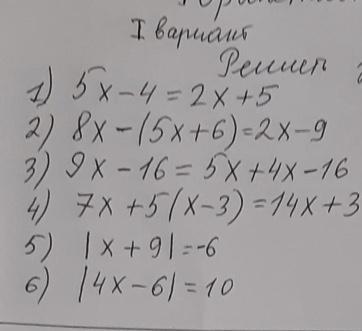 I вариант
1) 5x-4=2x+5
2) 8x-(5x+6)=2x-9
3) 9x-16=5x+4x-16
4) 7x+5(x-3)=14x+3
5) |x+9|=-6
6) |4x-6|=10